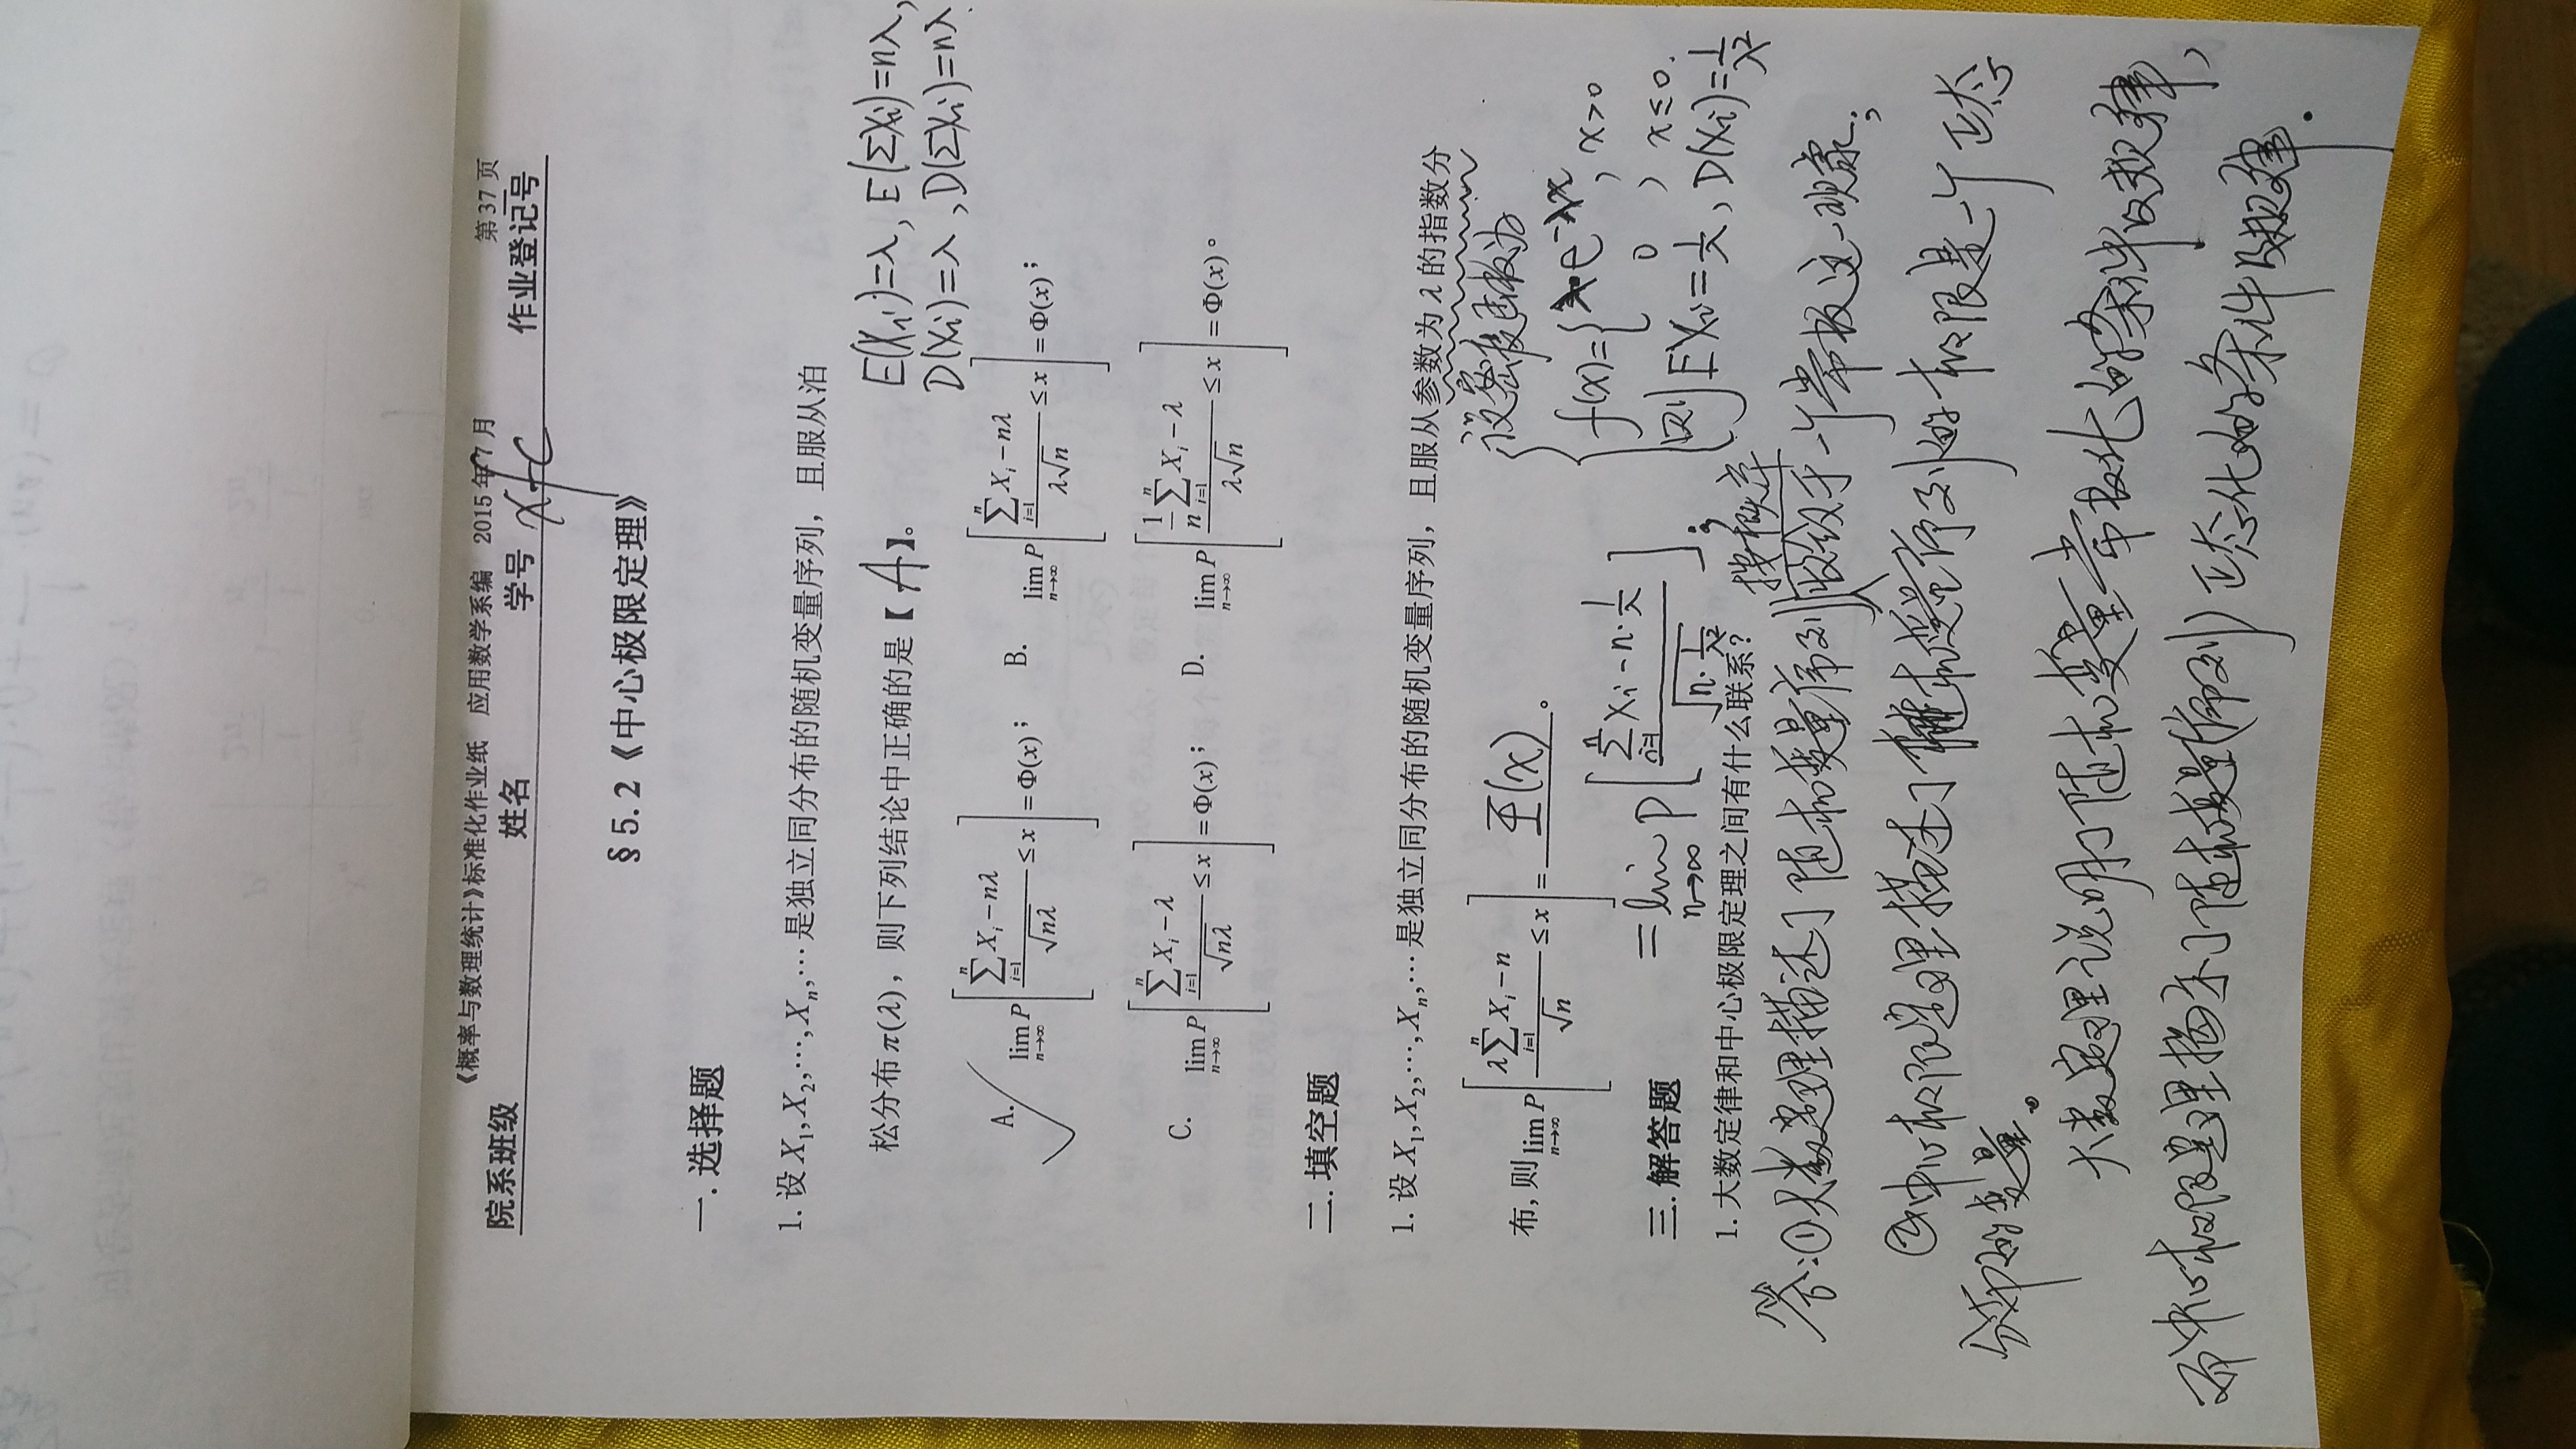 《概率与数理统计》标准化作业纸 应用数学系编 2015年7月 第37页
院系班级 姓名 学号 xfc 作业登记号
§5.2《中心极限定理》
一.选择题
1.设X₁,X₂,⋯,Xₙ,⋯是独立同分布的随机变量序列，且服从泊
松分布π(λ)，则下列结论中正确的是【A】。
E(Xi)=λ, E(ΣXi)=nλ,
D(Xi)=λ, D(ΣXi)=nλ.
A. lim_{n→∞} P[(∑_{i=1}^{n} X_i − nλ)/√(nλ) ≤ x] = Φ(x)； B. lim_{n→∞} P[(∑_{i=1}^{n} X_i − nλ)/(λ√n) ≤ x] = Φ(x)；
C. lim_{n→∞} P[(∑_{i=1}^{n} X_i − λ)/√(nλ) ≤ x] = Φ(x)； D. lim_{n→∞} P[((1/n)∑_{i=1}^{n} X_i − λ)/(λ√n) ≤ x] = Φ(x)。
二.填空题
1.设X₁,X₂,⋯,Xₙ,⋯是独立同分布的随机变量序列，且服从参数为λ的指数分
布,则 lim_{n→∞} P[(λ∑_{i=1}^{n} X_i − n)/√n ≤ x] = Φ(x)。
= lim_{n→∞} P[(∑_{i=1}^{n} Xi − n·1/λ)/√(n·1/λ²)];
设密度函数为
f(x)={λe^{-λx}, x>0
0, x≤0.
则EXi=1/λ, D(Xi)=1/λ²
三.解答题
1.大数定律和中心极限定理之间有什么联系?
答:①大数定理描述了随机变量序列按概率收敛于一个常数这一现象;
②中心极限定理描述了随机变量序列的极限是一个正态
分布的变量。
大数定理说明了随机变量常数化的条件及规律,
而中心极限定理揭示了随机变量(序列)正态化的条件及规律.